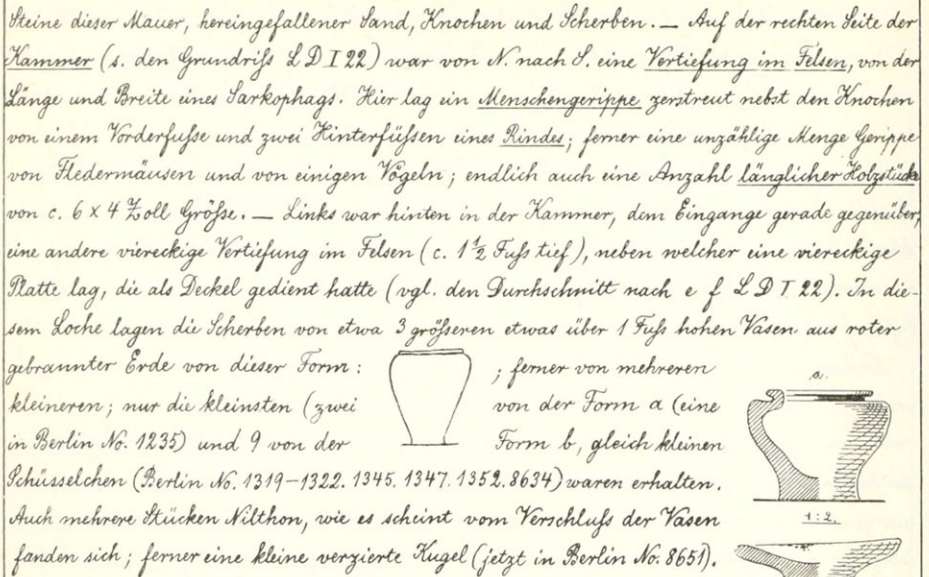 Steine dieser Mauer, hereingefallener Sand, Knochen und Scherben. — Auf der rechten Seite der
Kammer (s. den Grundriſs L D I 22) war von N. nach S. eine Vertiefung im Felsen, von der
Länge und Breite eines Sarkophags. Hier lag ein Menschengerippe zerstreut nebst den Knochen
von einem Vorderfuſse und zwei Hinterfüſsen eines Rindes; ferner eine unzählige Menge Gerippe
von Fledermäusen und von einigen Vögeln; endlich auch eine Anzahl länglicher Holzstücke
von c. 6 x 4 Zoll Gröſse. — Links war hinten in der Kammer, dem Eingange gerade gegenüber,
eine andere viereckige Vertiefung im Felsen (c. 1½ Fuſs tief), neben welcher eine viereckige
Platte lag, die als Deckel gedient hatte (vgl. den Durchschnitt nach e f L D I 22). In die-
sem Loche lagen die Scherben von etwa 3 gröſseren etwas über 1 Fuſs hohen Vasen aus roter
gebrannter Erde von dieser Form: ; ferner von mehreren
kleineren; nur die kleinsten (zwei von der Form a (eine
in Berlin No. 1235) und 9 von der Form b, gleich kleinen
Schüsselchen (Berlin No. 1319–1322. 1345. 1347. 1352. 8634) waren erhalten.
Auch mehrere Stücken Nilthon, wie es scheint vom Verschluſs der Vasen
fanden sich; ferner eine kleine verzierte Kugel (jetzt in Berlin No. 8651).
a.
1:2.